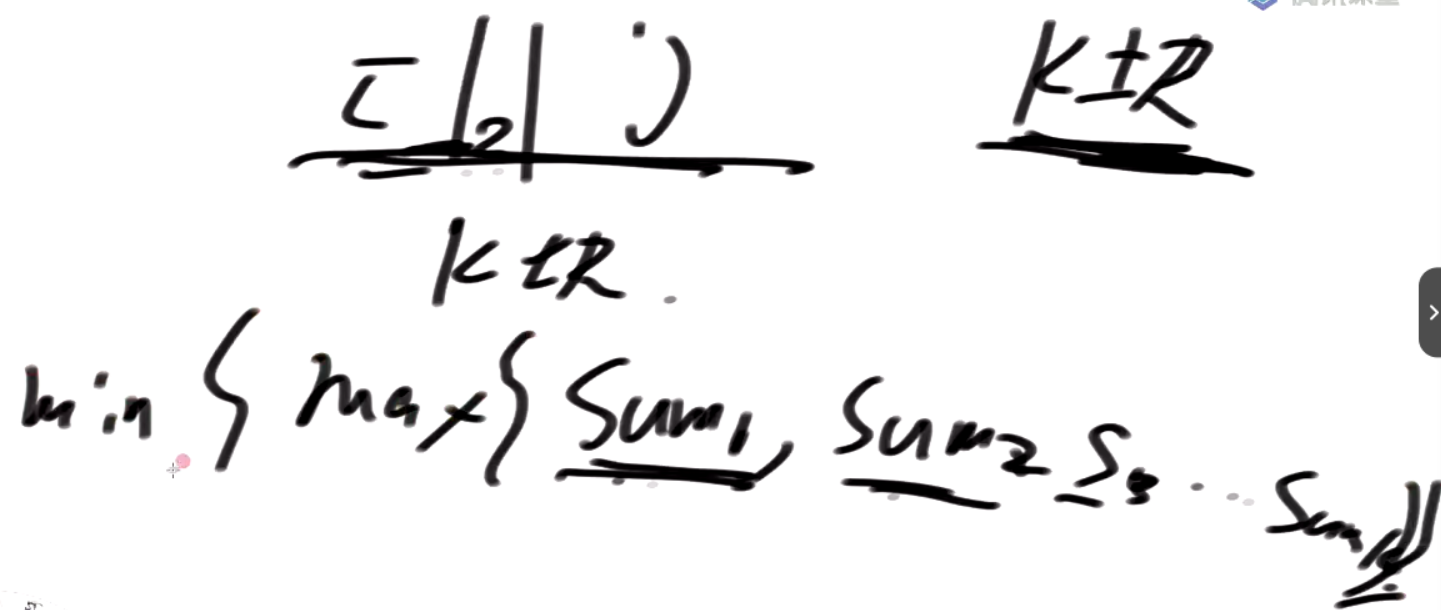 K±R
K±R.
min { max { Sum1, Sum2 S3 ... Sumk}}